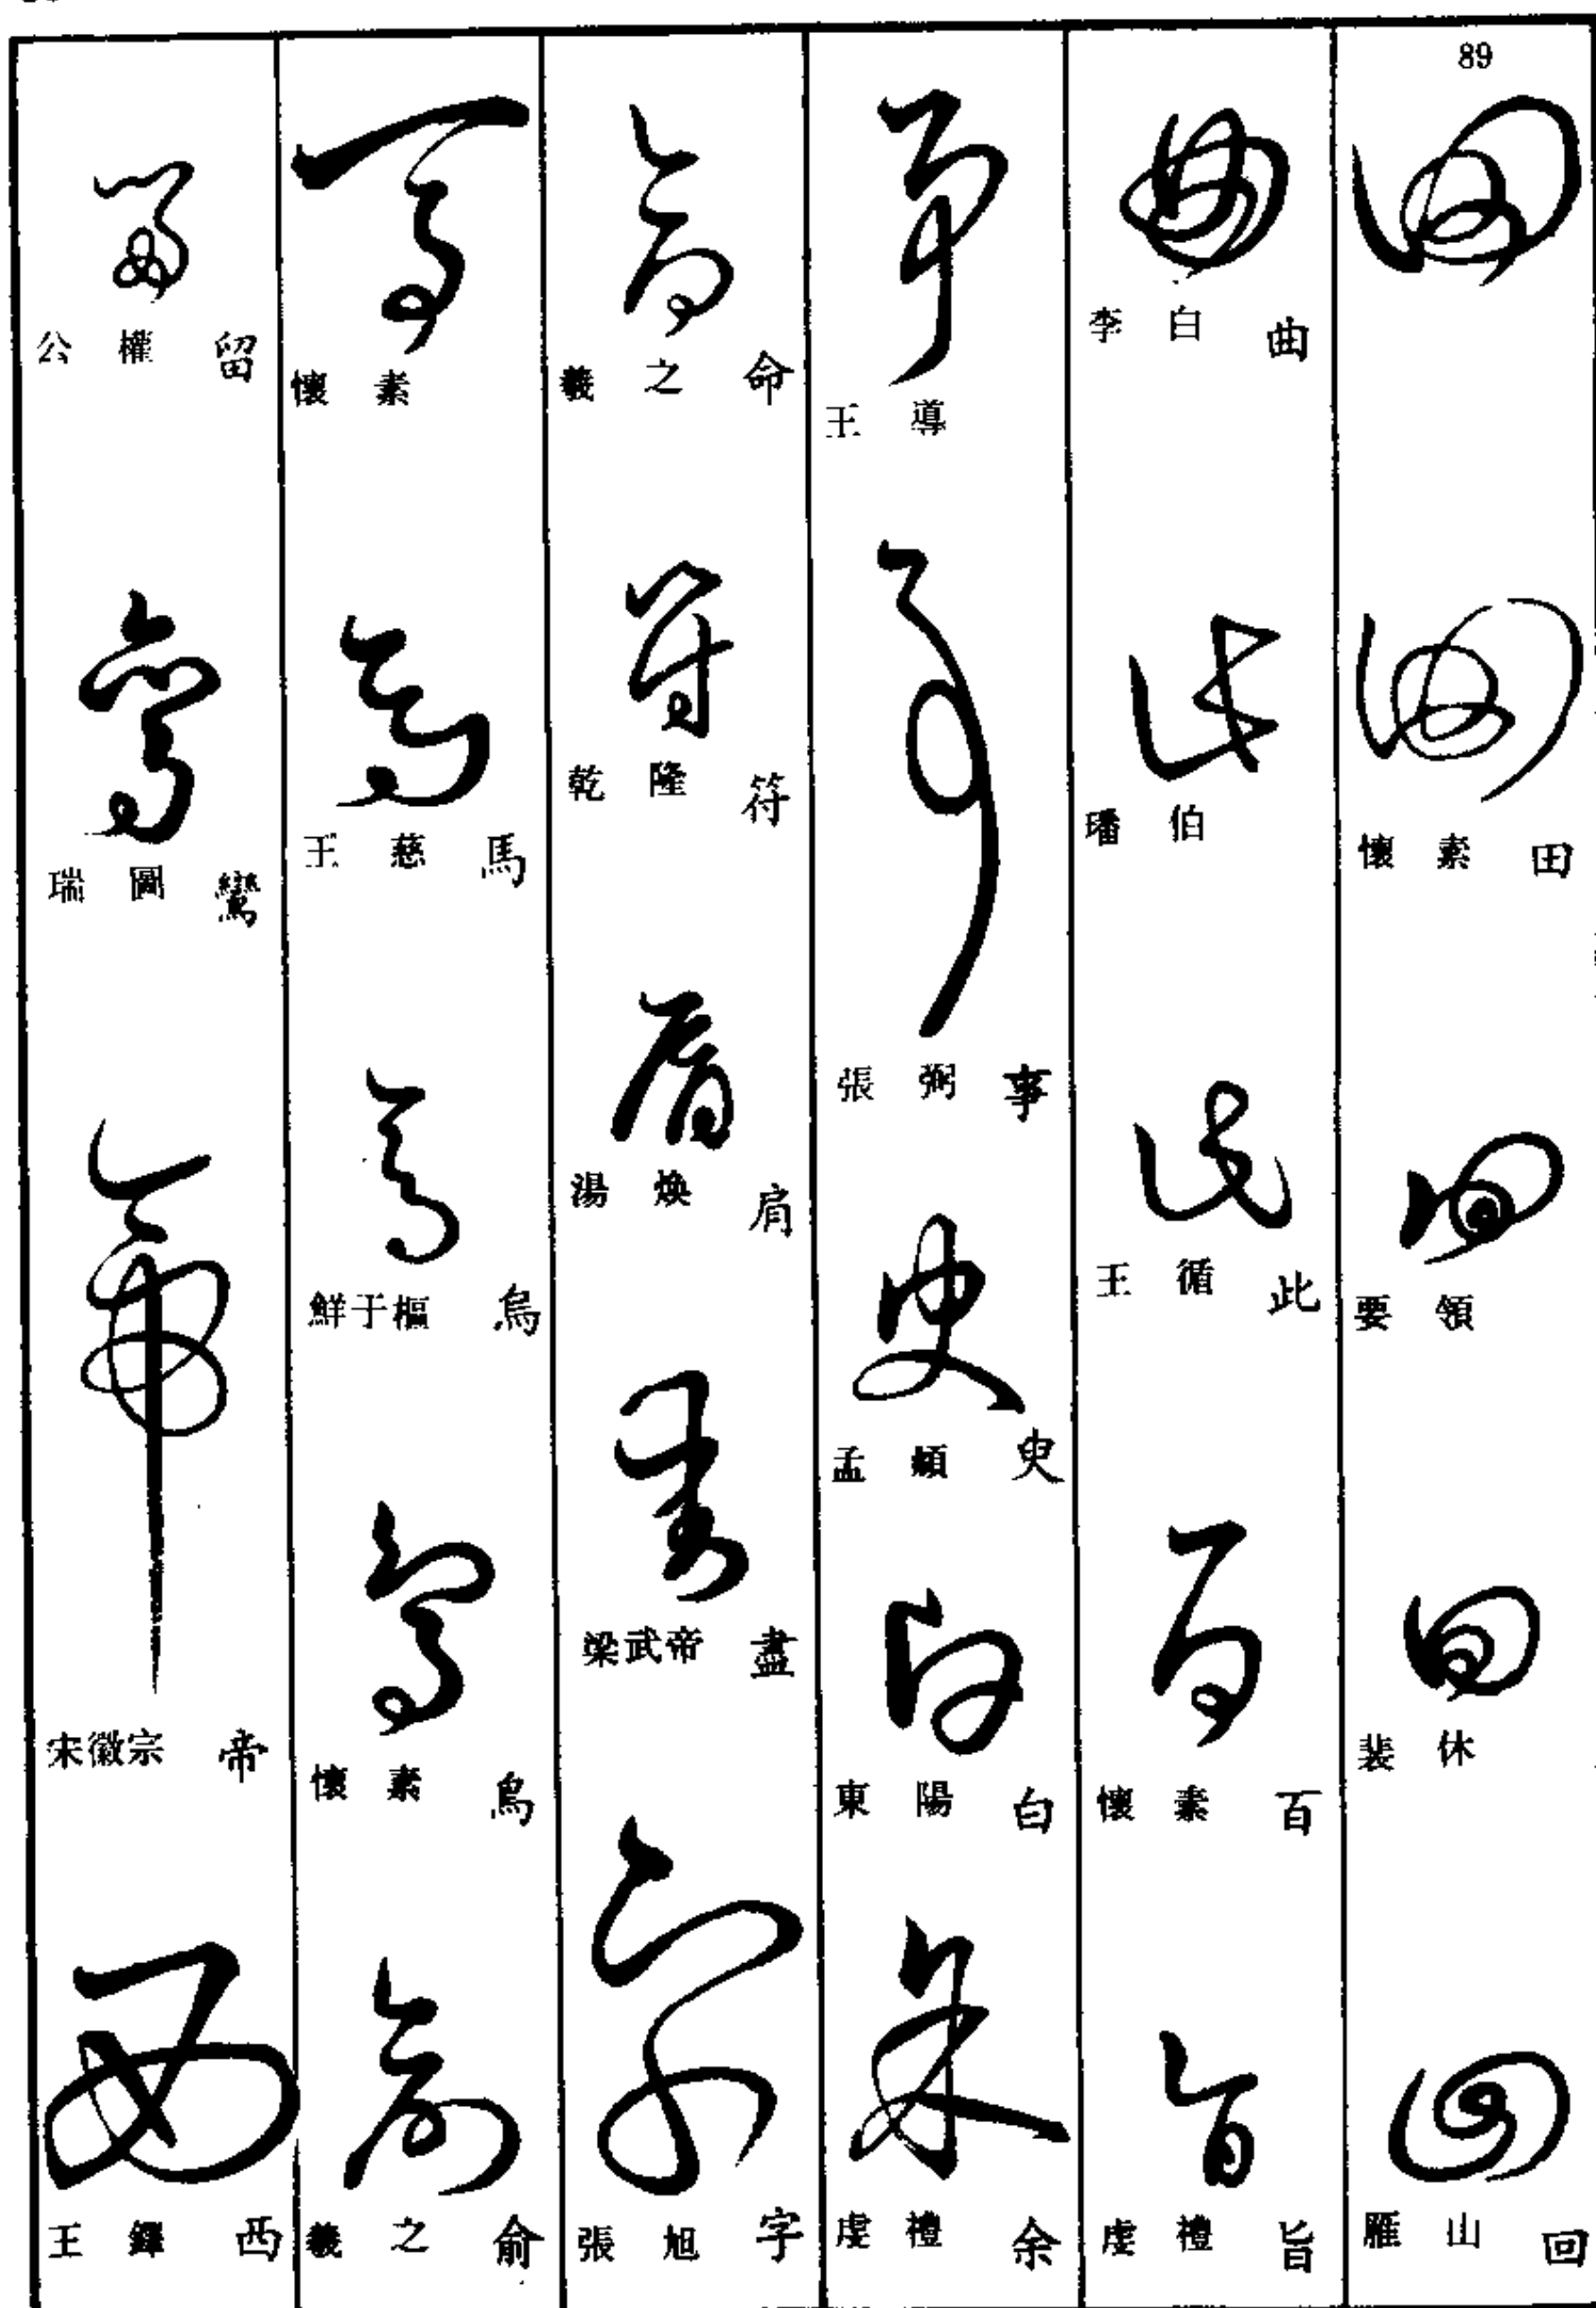 89
懷素 田
要領
裴休
雁山 回
李白 曲
璠伯
王循 此
懷素 百
虔禮 旨
王導
張弼 事
孟頫 史
東陽 白
虔禮 余
羲之 命
乾隆 符
湯煥 肩
梁武帝 盡
張旭 字
懷素
王慈 馬
鮮于樞 烏
懷素
羲之 俞
公權 留
瑞圖 鸞
宋徽宗 帝
王鐸 西